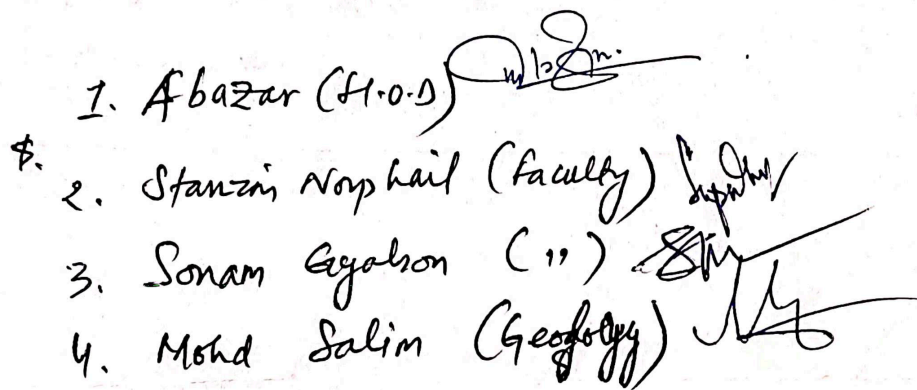 1. Abazar (H.O.D)
2. Stanzin Norphail (faculty)
3. Sonam Gyalson (,,)
4. Mohd Salim (Geology)